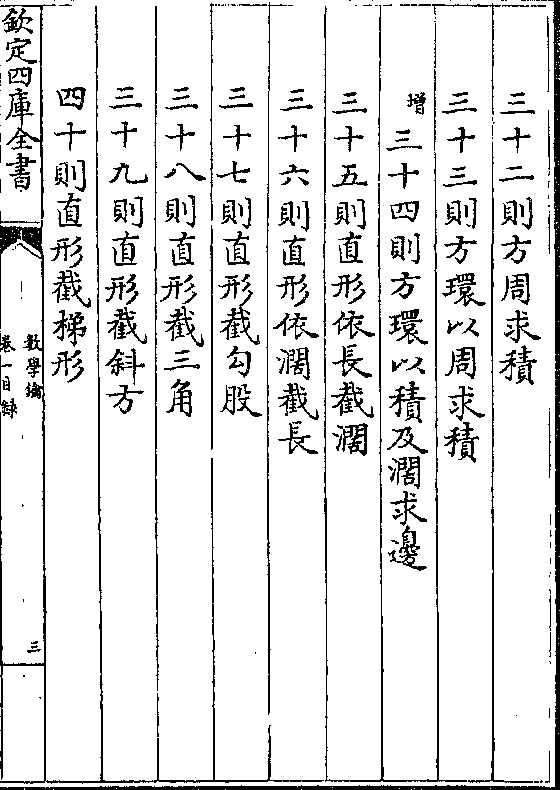 三十二則方周求積
三十三則方環以周求積
增三十四則方環以積及濶求邊
三十五則直形依長截濶
三十六則直形依濶截長
三十七則直形截勾股
三十八則直形截三角
三十九則直形截斜方
四十則直形截梯形
欽定四庫全書
數學鑰
卷一目録
三